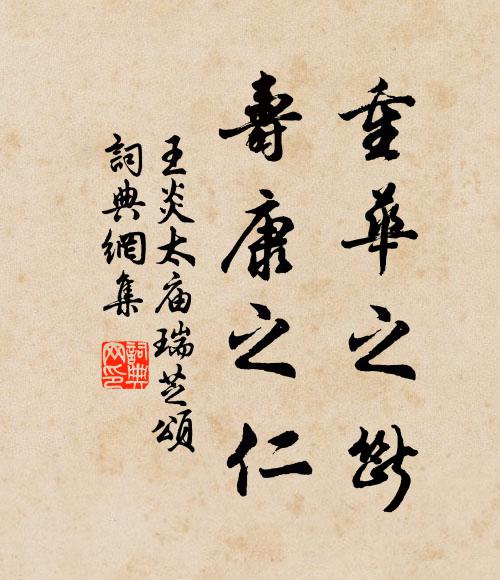 重華之斷
壽康之仁
王炎太庙瑞芝頌
詞典網集
詞典网印